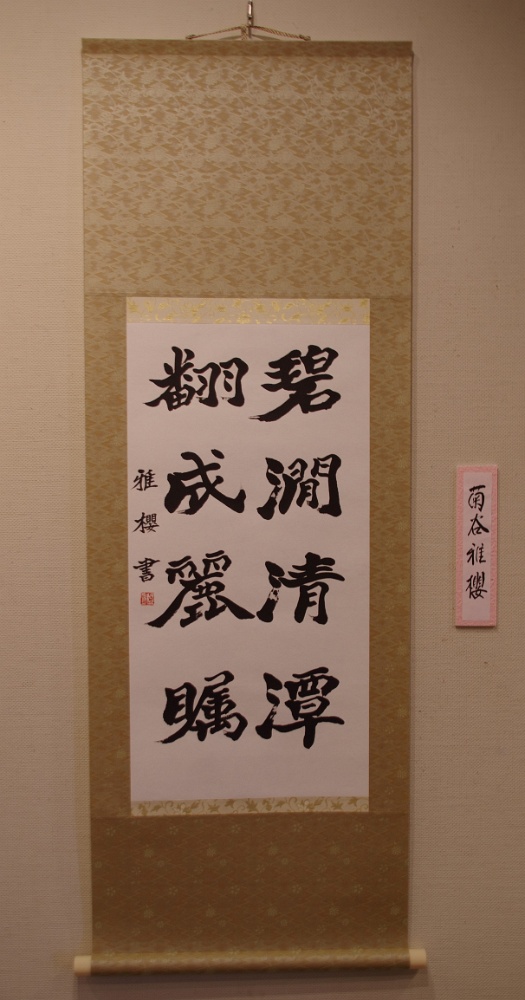 碧澗清潭
翻成麗矚
雅櫻書
菊谷雅櫻